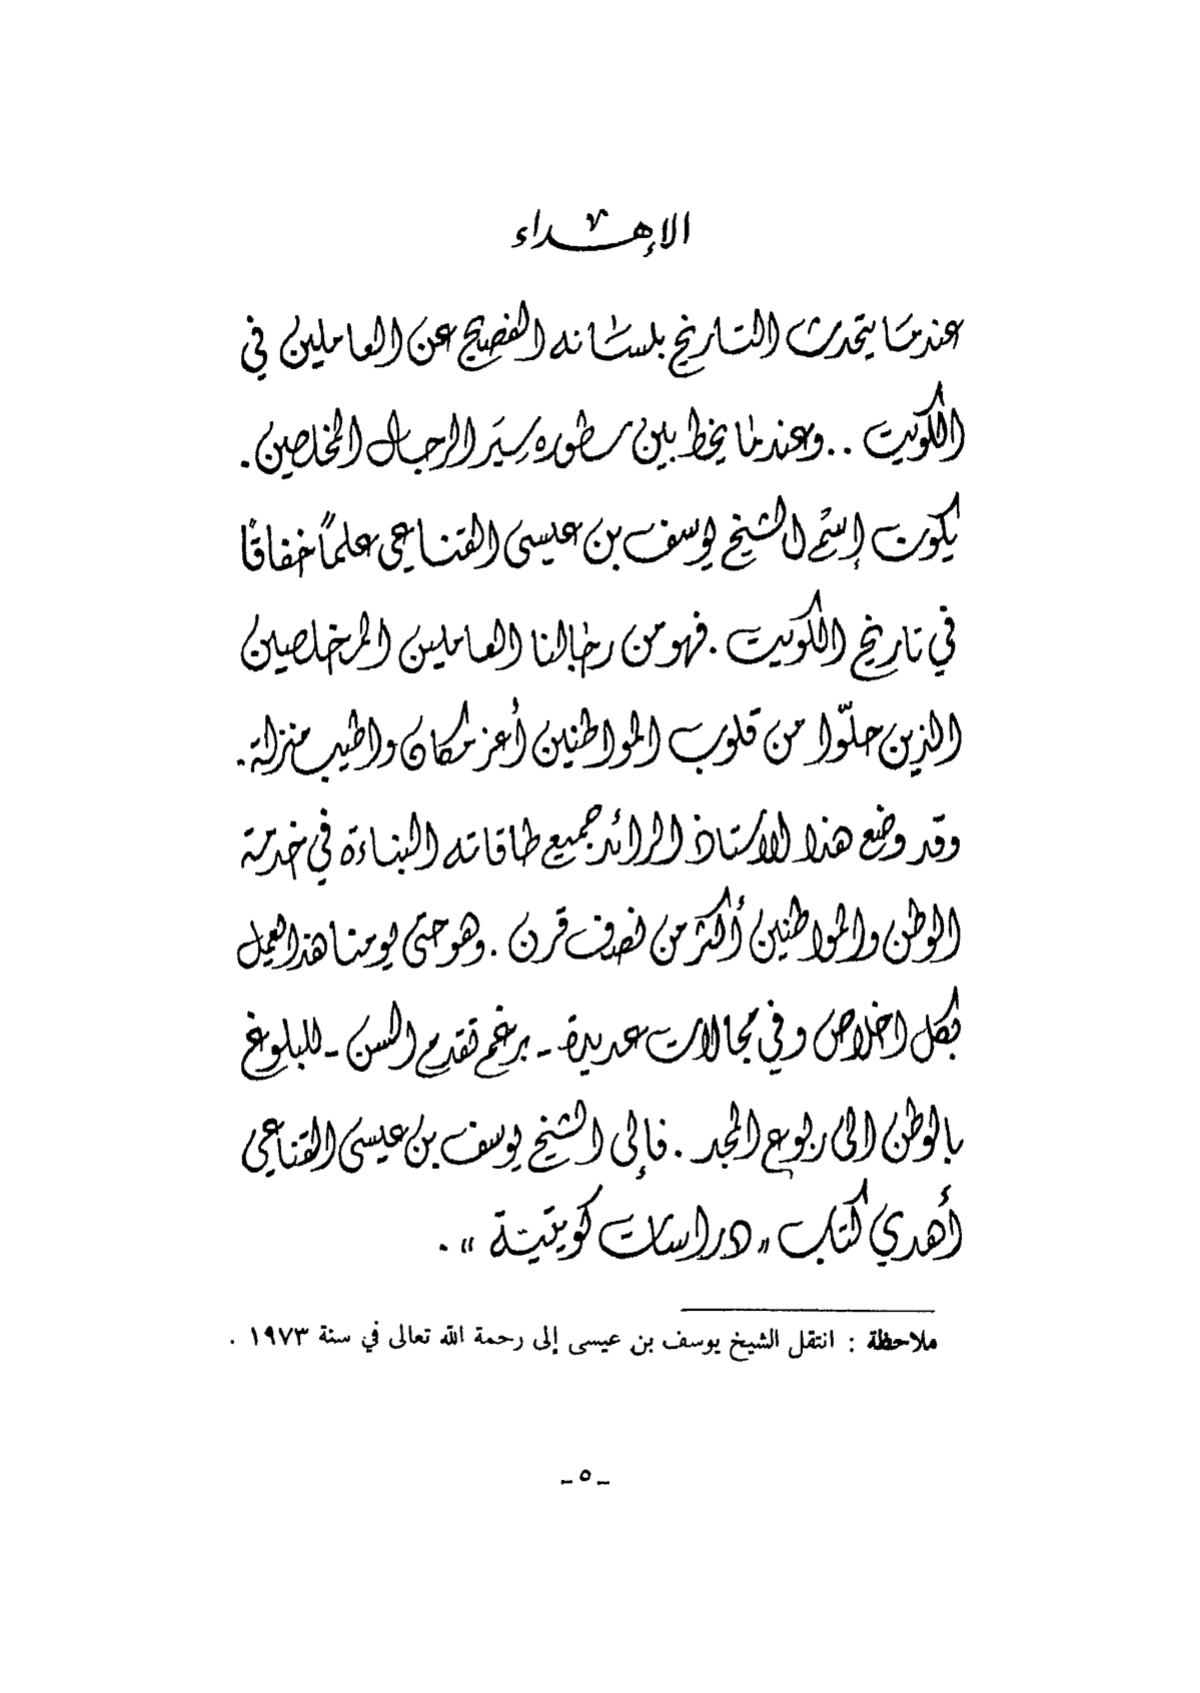 الإهداء
عندما يتحدث التاريخ بلسانه الفصيح عن العاملين في
الكويت .. وعندما يخط بين سطوره سِيَر الرجال المخلصين .
يكون إسْم الشيخ يوسف بن عيسى القناعي علماً خفاقاً
في تاريخ الكويت . فهو من رجالنا العاملين المخلصين
الذين حلّوا من قلوب المواطنين أعز مكان واطيب منزلة .
وقد وضع هذا الاستاذ الرائد جميع طاقاته البناءة في خدمة
الوطن والمواطنين أكثر من نصف قرن . وهو حتى يومنا هذا يعمل
بكل اخلاص وفي مجالات عديدة - برغم تقدم السن - للبلوغ
بالوطن الى ربوع المجد . فإلى الشيخ يوسف بن عيسى القناعي
أهدي كتاب « دراسات كويتية » .
ملاحظة : انتقل الشيخ يوسف بن عيسى إلى رحمة الله تعالى في سنة ١٩٧٣ .
- ٥ -